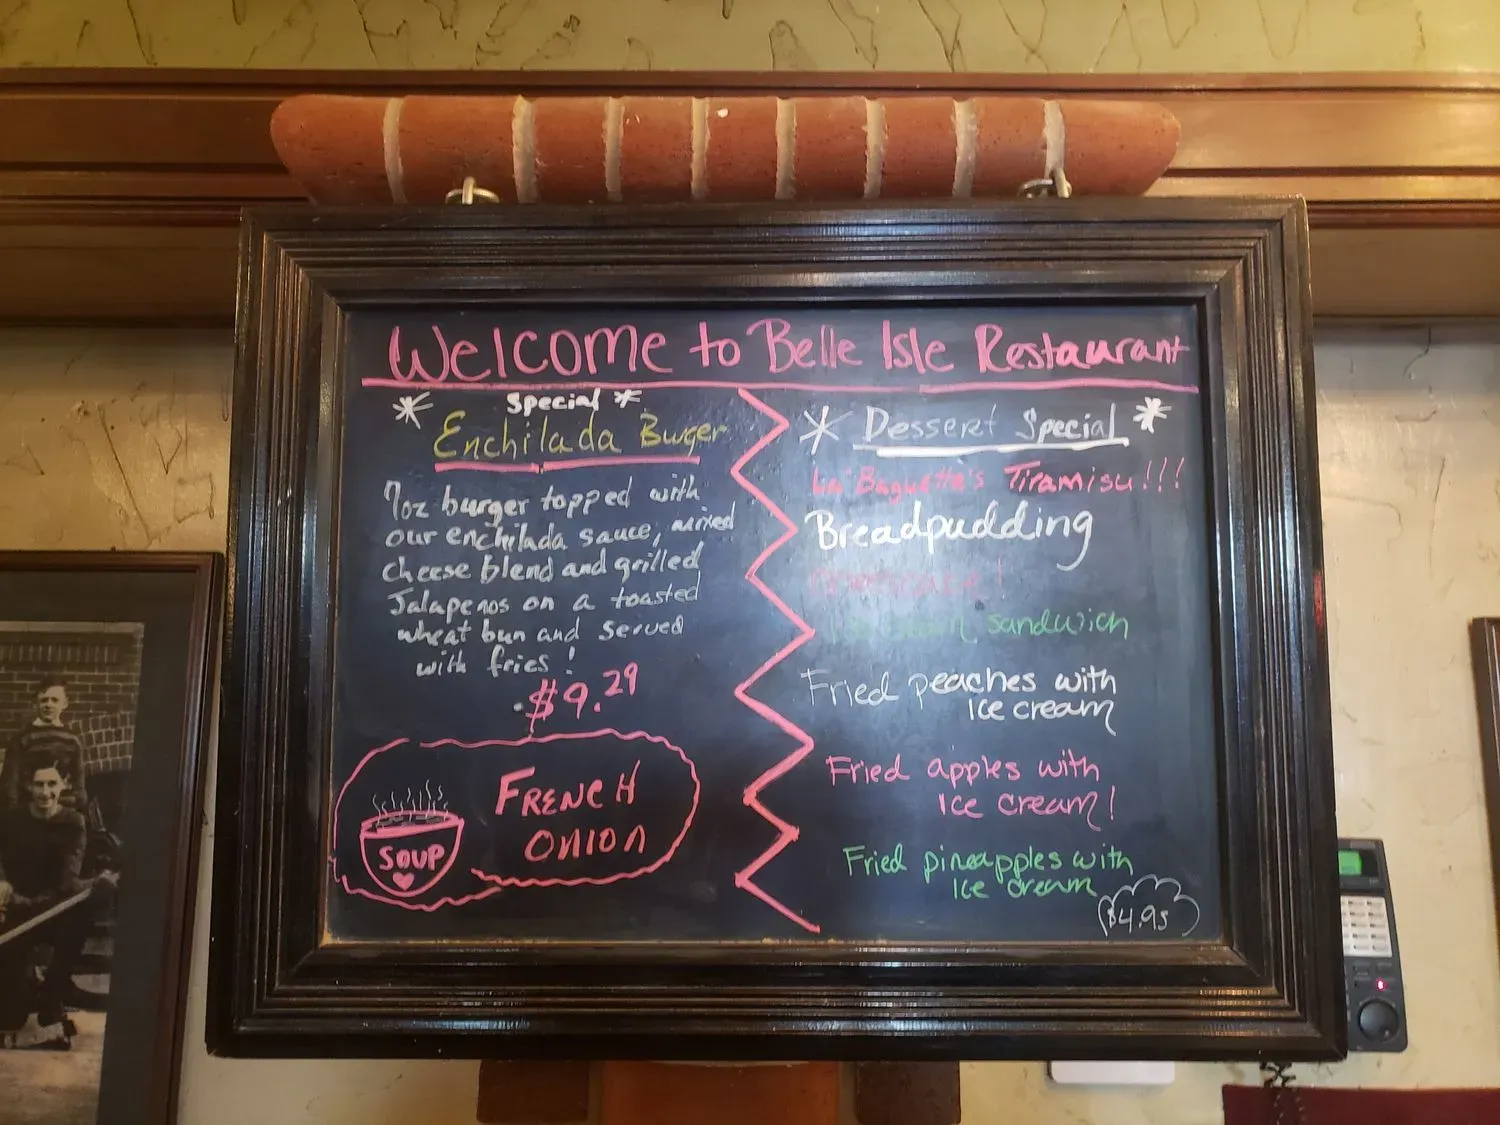 Welcome to Belle Isle Restaurant
* Special *
Enchilada Burger
7oz burger topped with
our enchilada sauce, mixed
cheese blend and grilled
Jalapenos on a toasted
wheat bun and served
with fries!
$9.29
SOUP
FRENCH
ONION
* Dessert Special *
La' Baguette's Tiramisu!!!
Breadpudding
sandwich
Fried peaches with
Ice cream
Fried apples with
Ice cream!
Fried pineapples with
Ice cream
$4.95